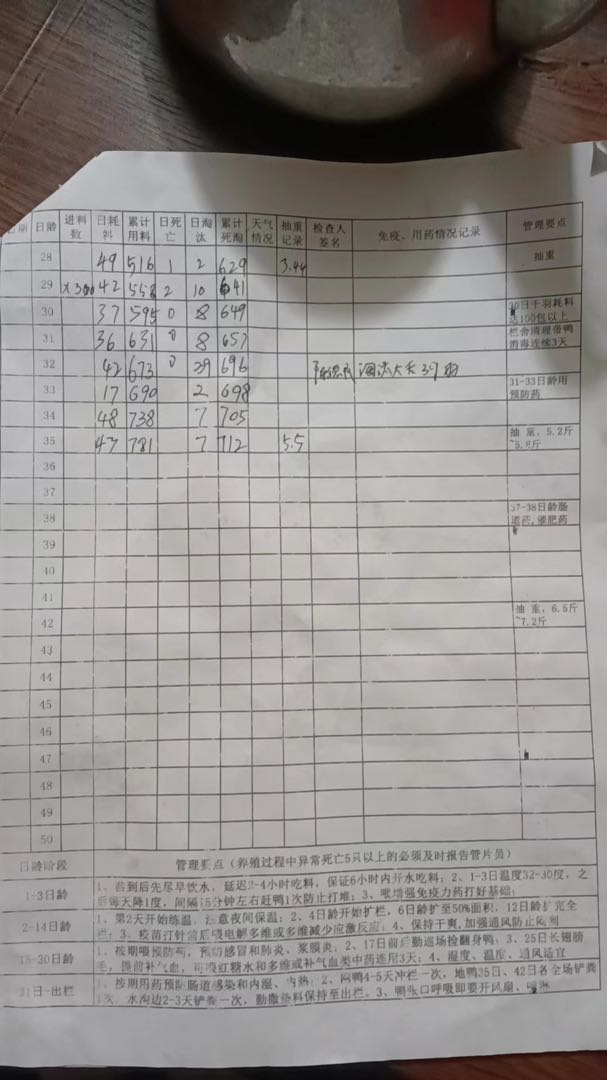 期 日龄 进料数 日耗料 累计用料 日死亡 日淘汰 累计死淘 天气情况 抽重记录 检查人签名 免疫、用药情况记录 管理要点
28 49 516 1 2 629 3.44 抽重
29 42 558 2 10 641
30 37 595 0 8 649 30日千羽耗料达100包以上
31 36 631 0 8 657 栏舍清理带鸭消毒连续3天
32 42 673 0 29 696
33 17 690 2 698 31-33日龄用预防药
34 48 738 7 705
35 43 781 7 712 5.5 抽重，5.2斤~5.6斤
36
37
38 37-38日龄肠道药,催肥药
39
40
41
42 抽重，6.5斤~7.2斤
43
44
45
46
47
48
49
50
日龄阶段 管理要点（养殖过程中异常死亡5只以上的必须及时报告管片员）
1-3日龄 1、苗到后先尽早饮水，延迟2-4小时吃料，保证6小时内开水吃料；2、1-3日温度32-30度，之
后每天降1度，间隔15分钟左右赶鸭1次防止打堆；3、喂增强免疫力药打好基础；
2-14日龄 1、第2天开始练温，注意夜间保温；2、4日龄开始扩栏，6日龄扩至50%面积，12日龄扩完全
栏；3、疫苗打针前后喂电解多维或多维减少应激反应；4、保持干爽,加强通风防止闷到
15-30日龄 1、按期喂预防药，预防感冒和肺炎、浆膜炎；2、17日前后勤巡场捡翻身鸭；3、25日长翅膀
毛，提前补气血，可喂红糖水和多维或补气血类中药连用3天；4、湿度、温度、通风适宜
31日-出栏 1、按期用药预防肠道感染和内湿、内热；2、网鸭4-5天冲栏一次，地鸭35日、42日各全场铲粪
1次，水沟边2-3天铲粪一次，勤撒垫料保持至出栏。3、鸭张口呼吸即要开风扇、